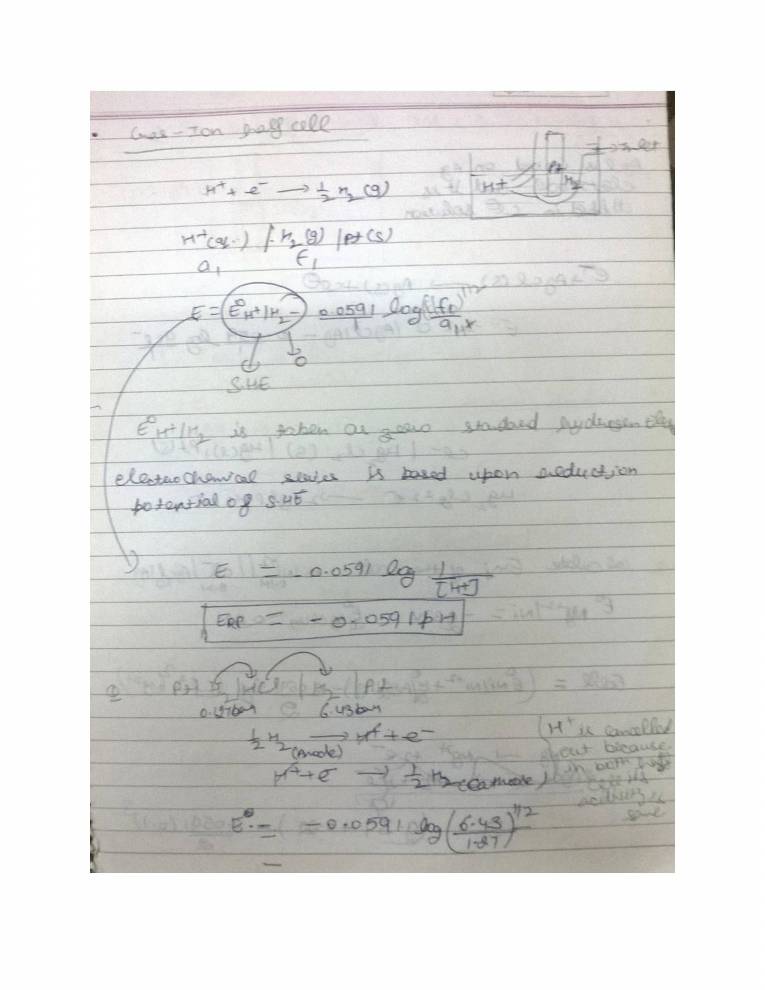 • Gas-Ion half cell
→ Inlet
Pt
H+
H2
H+ + e- → 1/2 H2 (g)
H+(aq.) | H2(g) | Pt(s)
a1 f1
E = E°H+/H2 - 0.0591 log (f1)^1/2 / aH+
1
0
S.H.E
E°H+/H2 is taken as zero standard hydrogen
electrochemical series is based upon reduction
potential of S.H.E
E = - 0.0591 log 1/[H+]
ERP = - 0.0591 pH
Q Pt H2 | HCl | H2 | Pt
6.43bar
1/2 H2 (Anode) → H+ + e-
H+ + e- → 1/2 H2 (cathode)
(H+ is cancelled
out because
in both half
cell its
activity is
same
E° = - 0.0591 log (6.43/1.27)^1/2